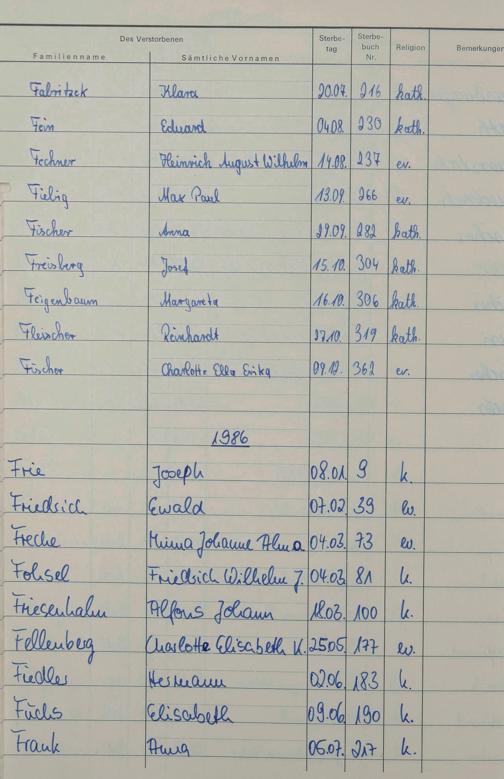 Des Verstorbenen
Familienname Sämtliche Vornamen Sterbe-tag Sterbe-buch Nr. Religion Bemerkungen
Fabritzek Klara 20.07. 216 kath.
Fein Eduard 04.08. 230 kath.
Fechner Heinrich August Wilhelm 14.08. 237 ev.
Fiebig Max Paul 13.09. 266 ev.
Fischer Anna 29.09. 282 kath.
Freisberg Josef 15.10. 304 kath.
Feigenbaum Margareta 16.10. 306 kath.
Fleischer Reinhardt 27.10. 319 kath.
Fischer Charlotte Ella Erika 09.12. 362 ev.
1986
Frie Joseph 08.01. 9 k.
Friedrich Ewald 07.02. 39 ev.
Freche Minna Johanne Alma 04.03. 73 ev.
Fohsel Friedrich Wilhelm J. 04.03. 81 k.
Friesenhahn Alfons Johann 18.03. 100 k.
Fellenberg Charlotte Elisabeth K. 25.05. 177 ev.
Fiedler Hermann 02.06. 183 k.
Fuchs Elisabeth 09.06. 190 k.
Frank Anna 05.07. 217 k.